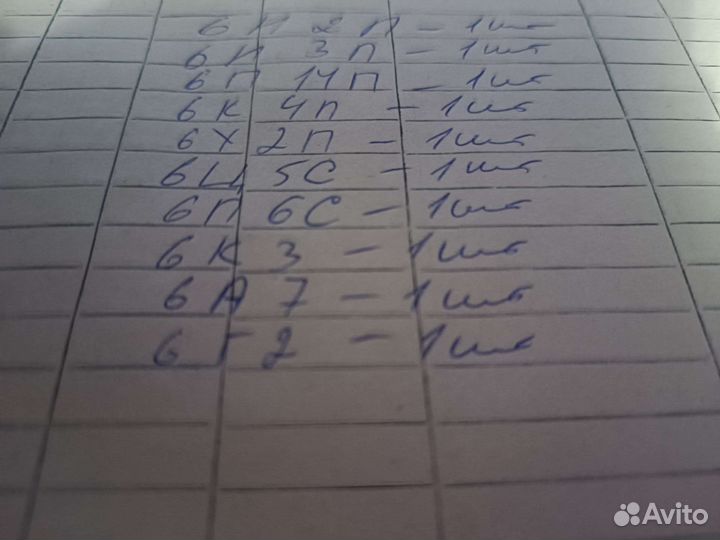 6Н 2П - 1шт
6И 3П - 1шт
6П 14П - 1шт
6К 4П - 1шт
6Х 2П - 1шт
6Ц 5С - 1шт
6П 6С - 1шт
6К 3 - 1шт
6А 7 - 1шт
6Г2 - 1шт
Avito